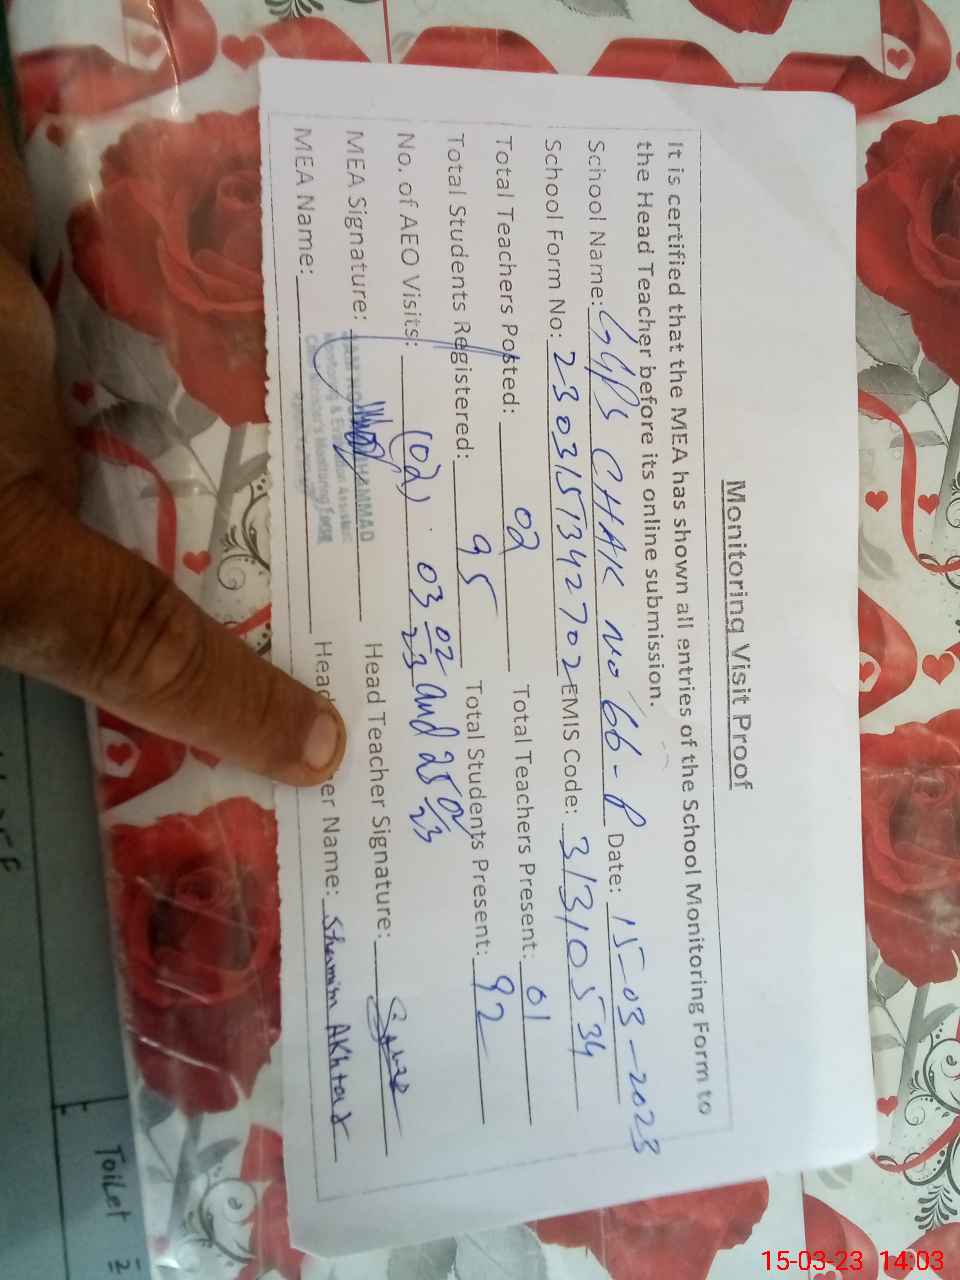 Monitoring Visit Proof
It is certified that the MEA has shown all entries of the School Monitoring Form to
the Head Teacher before its online submission.
School Name: GGPS CHAK No 66-P Date: 15-03-2023
School Form No: 2303151342702 EMIS Code: 31310534
Total Teachers Posted: 02 Total Teachers Present: 01
Total Students Registered: 95 Total Students Present: 92
No. of AEO Visits: (02) 03 02 23 and 25 02 23
MEA Signature: Head Teacher Signature:
MEA Name: Head Teacher Name: Shamim AKhtar
MUHAMMAD
Monitoring & Evaluation Assistant
Chief Minister's Monitoring Force
Toilet = 2
15-03-23 14:03